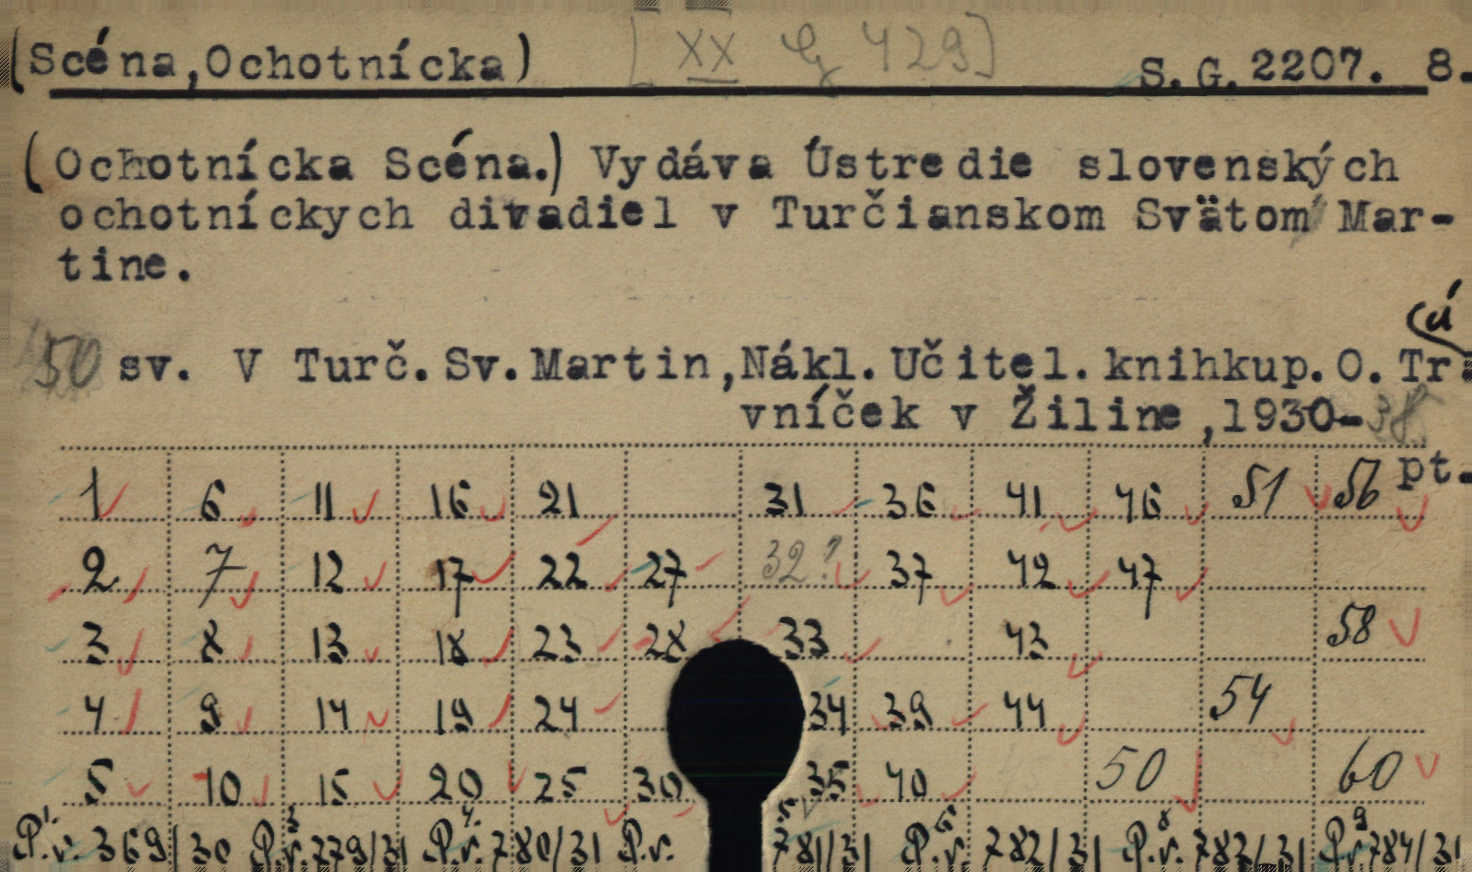 (Scéna,Ochotnícka) [XX 429] S.G.2207. 8.
(Ochotnícka Scéna.) Vydáva Ústredie slovenských
ochotníckych divadiel v Turčianskom Svätom Mar-
tine.
50 sv. V Turč.Sv.Martin,Nákl.Učitel.knihkup.O.Trá
vníček v Žiline,1930-38.
pt.
1 6 11 16 21 31 36 41 46 51 56
2 7 12 17 22 27 32? 37 42 47
3 8 13 18 23 28 33 43 58
4 9 14 19 24 34 39 44 54
5 10 15 20 25 30 35 40 50 60
P.v. 369/30 P.v. 779/31 P.v. 780/31 P.v. 781/31 P.v. 782/31 P.v. 783/31 P.v. 784/31